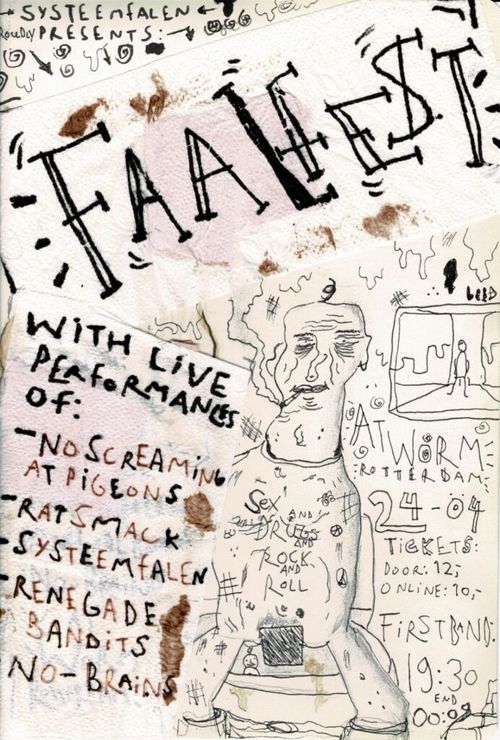 → SYSTEEMFALEN ←
PRESENTS: →
FAALFEST
WITH LIVE
PERFORMANCES
OF:
- NO SCREAMING
AT PIGEONS
- RATSMACK
- SYSTEEMFALEN
- RENEGADE
BANDITS
NO-BRAINS
SEX AND
DRUGS
AND
ROCK
AND
ROLL
AT WORM
ROTTERDAM
24-04
TICKETS:
DOOR: 12,-
ONLINE: 10,-
FIRST BAND:
19:30
END
00:00